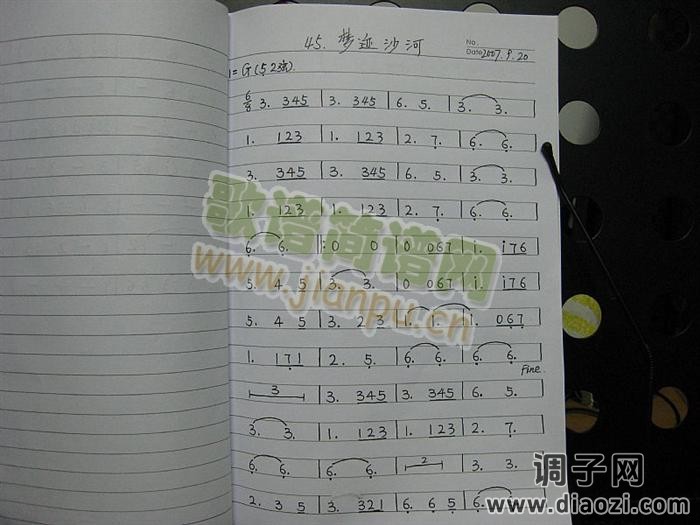 45. 梦迹沙河
No.
Date 2007.9.20
1=G(52弦)
6/8 3. 345 | 3. 345 | 6. 5. | 3. 3. |
1. 123 | 1. 123 | 2. 7. | 6. 6. |
3. 345 | 3. 345 | 6. 5. | 3. 3. |
1. 123 | 1. 123 | 2. 7. | 6. 6. |
6. 6. |: 0 0 | 0 067 | i. i76 |
5. 4 5 | 3. 3. | 0 067 | i. i76 |
5. 4 5 | 3. 23 | 1. 1. | 1. 067 |
1. 171 | 2. 5. | 6. 6. | 6. 6. |
Fine.
3 | 3. 345 | 3. 345 | 6. 5. |
3. 3. | 1. 123 | 1. 123 | 2. 7. |
6. 6. | 6. 6. | 2 | 3. 3. |
2. 3 5 | 3. 321 | 6. 6 5 | 6.
歌谱简谱网
www.jianpu.cn
调子网
www.diaozi.com